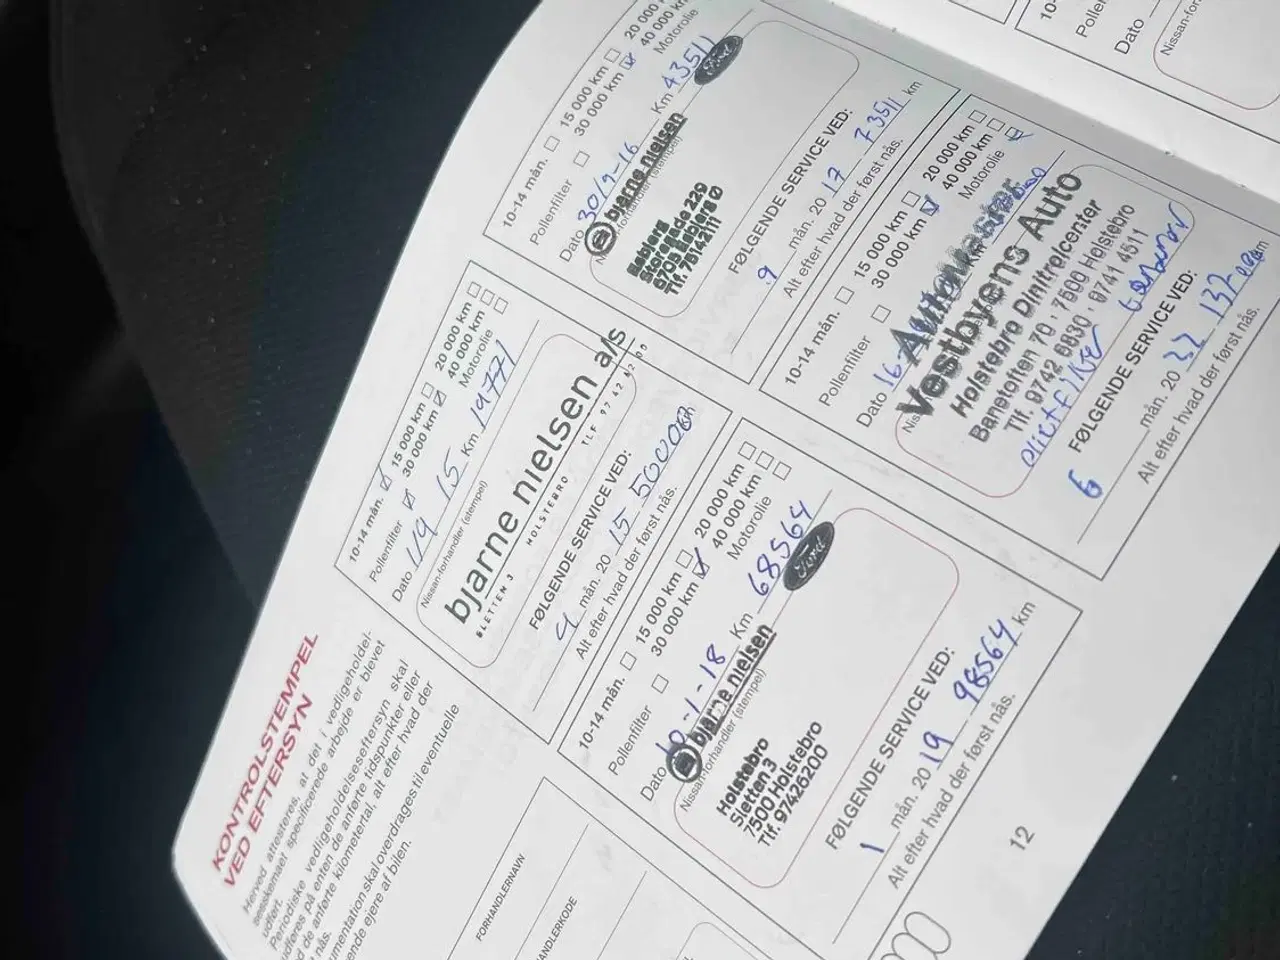 KONTROLSTEMPEL
VED EFTERSYN
Herved attesteres, at det i vedligeholdel-
sesskemaet specificerede arbejde er blevet
udført.
Periodiske vedligeholdelseseftersyn skal
udføres på enten de anførte tidspunkter eller
d de anførte kilometertal, alt efter hvad der
nås.
umentation skal overdrages til eventuelle
ende ejere af bilen.
10-14 mån. 15 000 km 20 000 km
Pollenfilter 30 000 km 40 000 km
Motorolie
Dato 1/9 15 Km 19771
Nissan-forhandler (stempel)
bjarne nielsen a/s
SLETTEN 3 HOLSTEBRO TLF 97 42
FØLGENDE SERVICE VED:
9 mån. 20 15 50000 km
Alt efter hvad der først nås.
10-14 mån. 15 000 km 20 000 km
Pollenfilter 30 000 km 40 000 km
Motorolie
Dato 30/9-16 Km 43511
bjarne nielsen
Ford
Esbjerg
Storegade 229
6705 Esbjerg Ø
Tlf. 76142111
FØLGENDE SERVICE VED:
9 mån. 20 17 73511 km
Alt efter hvad der først nås.
10-14 mån. 15 000 km 20 000 km
Pollenfilter 30 000 km 40 000 km
Motorolie
Dato 10-1-18 Km 68564
Nissan-forhandler (stempel)
bjarne nielsen
Ford
Holstebro
Sletten 3
7500 Holstebro
Tlf. 97426200
FØLGENDE SERVICE VED:
1 mån. 20 19 98564 km
Alt efter hvad der først nås.
10-14 mån. 15 000 km 20 000 km
Pollenfilter 30 000 km 40 000 km
Motorolie
Dato 16
Automester
Vestbyens Auto
Holstebro Dinitrolcenter
Banetoften 70 · 7500 Holstebro
Tlf. 9742 6830 · 9741 4511
FØLGENDE SERVICE VED:
6 mån. 20 km
Alt efter hvad der først nås.
FORHANDLERNAVN
HANDLERKODE
12
10-
Pollen
Dato
Nissan-for